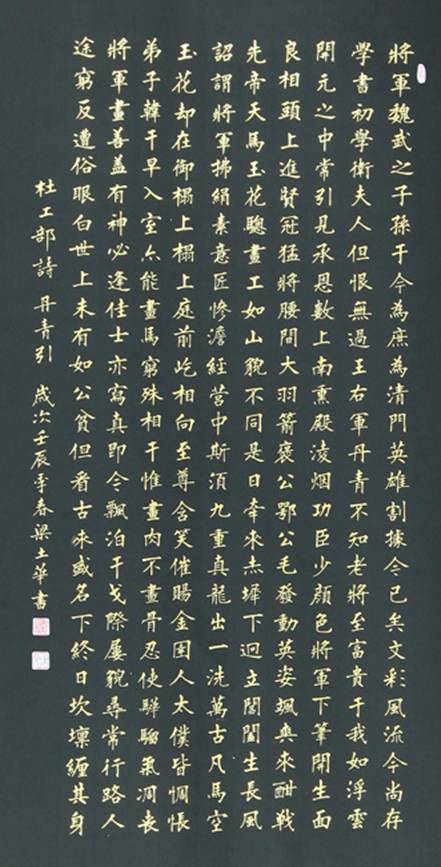 將軍魏武之子孫于今為庶為清門英雄割據今已矣文彩風流今尚存
學書初學衛夫人但恨無過王右軍丹青不知老將至富貴于我如浮雲
開元之中常引見承恩數上南熏殿淩烟功臣少顏色將軍下筆開生面
良相頭上進賢冠猛將腰間大羽箭褒公鄂公毛發動英姿颯爽來酣戰
先帝天馬玉花驄畫工如山貌不同是日牽來赤墀下迥立閶闔生長風
詔謂將軍拂絹素意匠慘澹經營中斯須九重真龍出一洗萬古凡馬空
玉花却在御榻上榻上庭前屹相向至尊含笑催賜金圉人太僕皆惆悵
弟子韓干早入室亦能畫馬窮殊相干惟畫肉不畫骨忍使驊騮氣凋喪
將軍畫善蓋有神必逢佳士亦寫真即今飄泊干戈際屢貌尋常行路人
途窮反遭俗眼白世上未有如公貧但看古來盛名下終日坎壈纏其身
杜工部詩 丹青引 歲次壬辰季春梁土華書